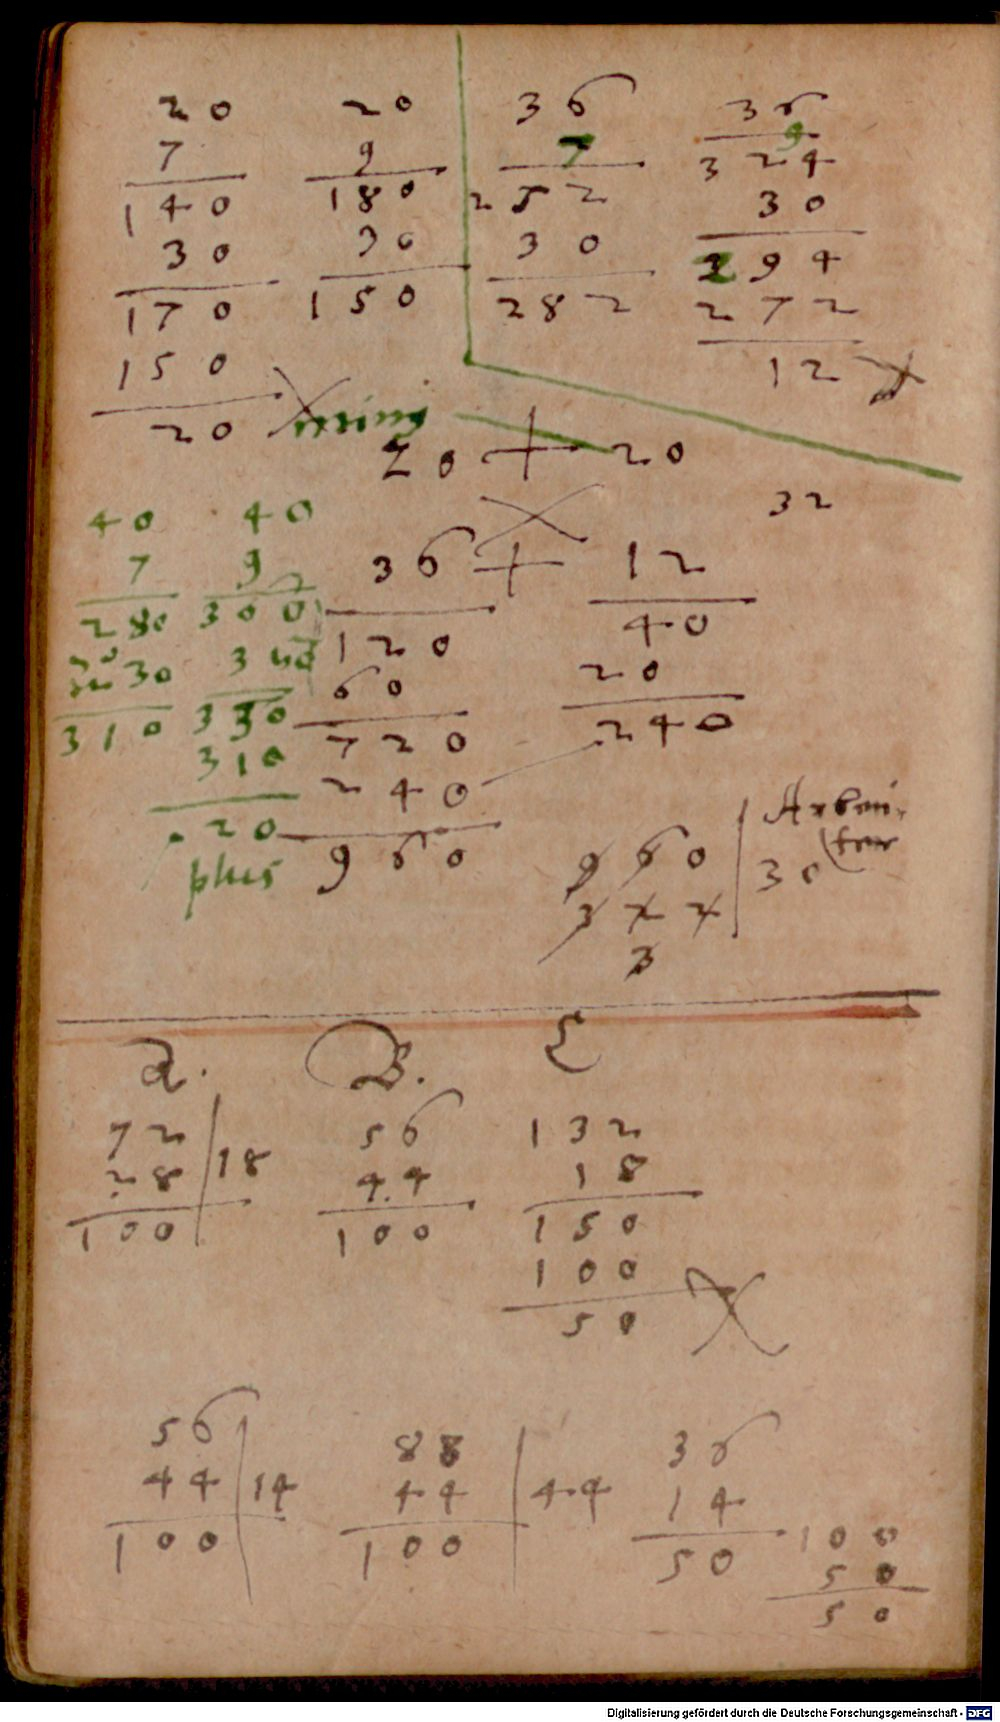 20
7
140
30
170
150
20
20
9
180
30
150
36
7
252
30
282
36
9
324
30
294
272
12
20 + 20
32
40
7
280
30
310
40
9
360
30
330
310
20
plus
36 +
120
60
720
240
960
12
40
20
240
960
30
A.
72
28 | 18
100
B.
56
44
100
132
18
150
100
50
56
44 | 14
100
88
44 | 44
100
36
14
50
100
50
50
Digitalisierung gefördert durch die Deutsche Forschungsgemeinschaft - DFG